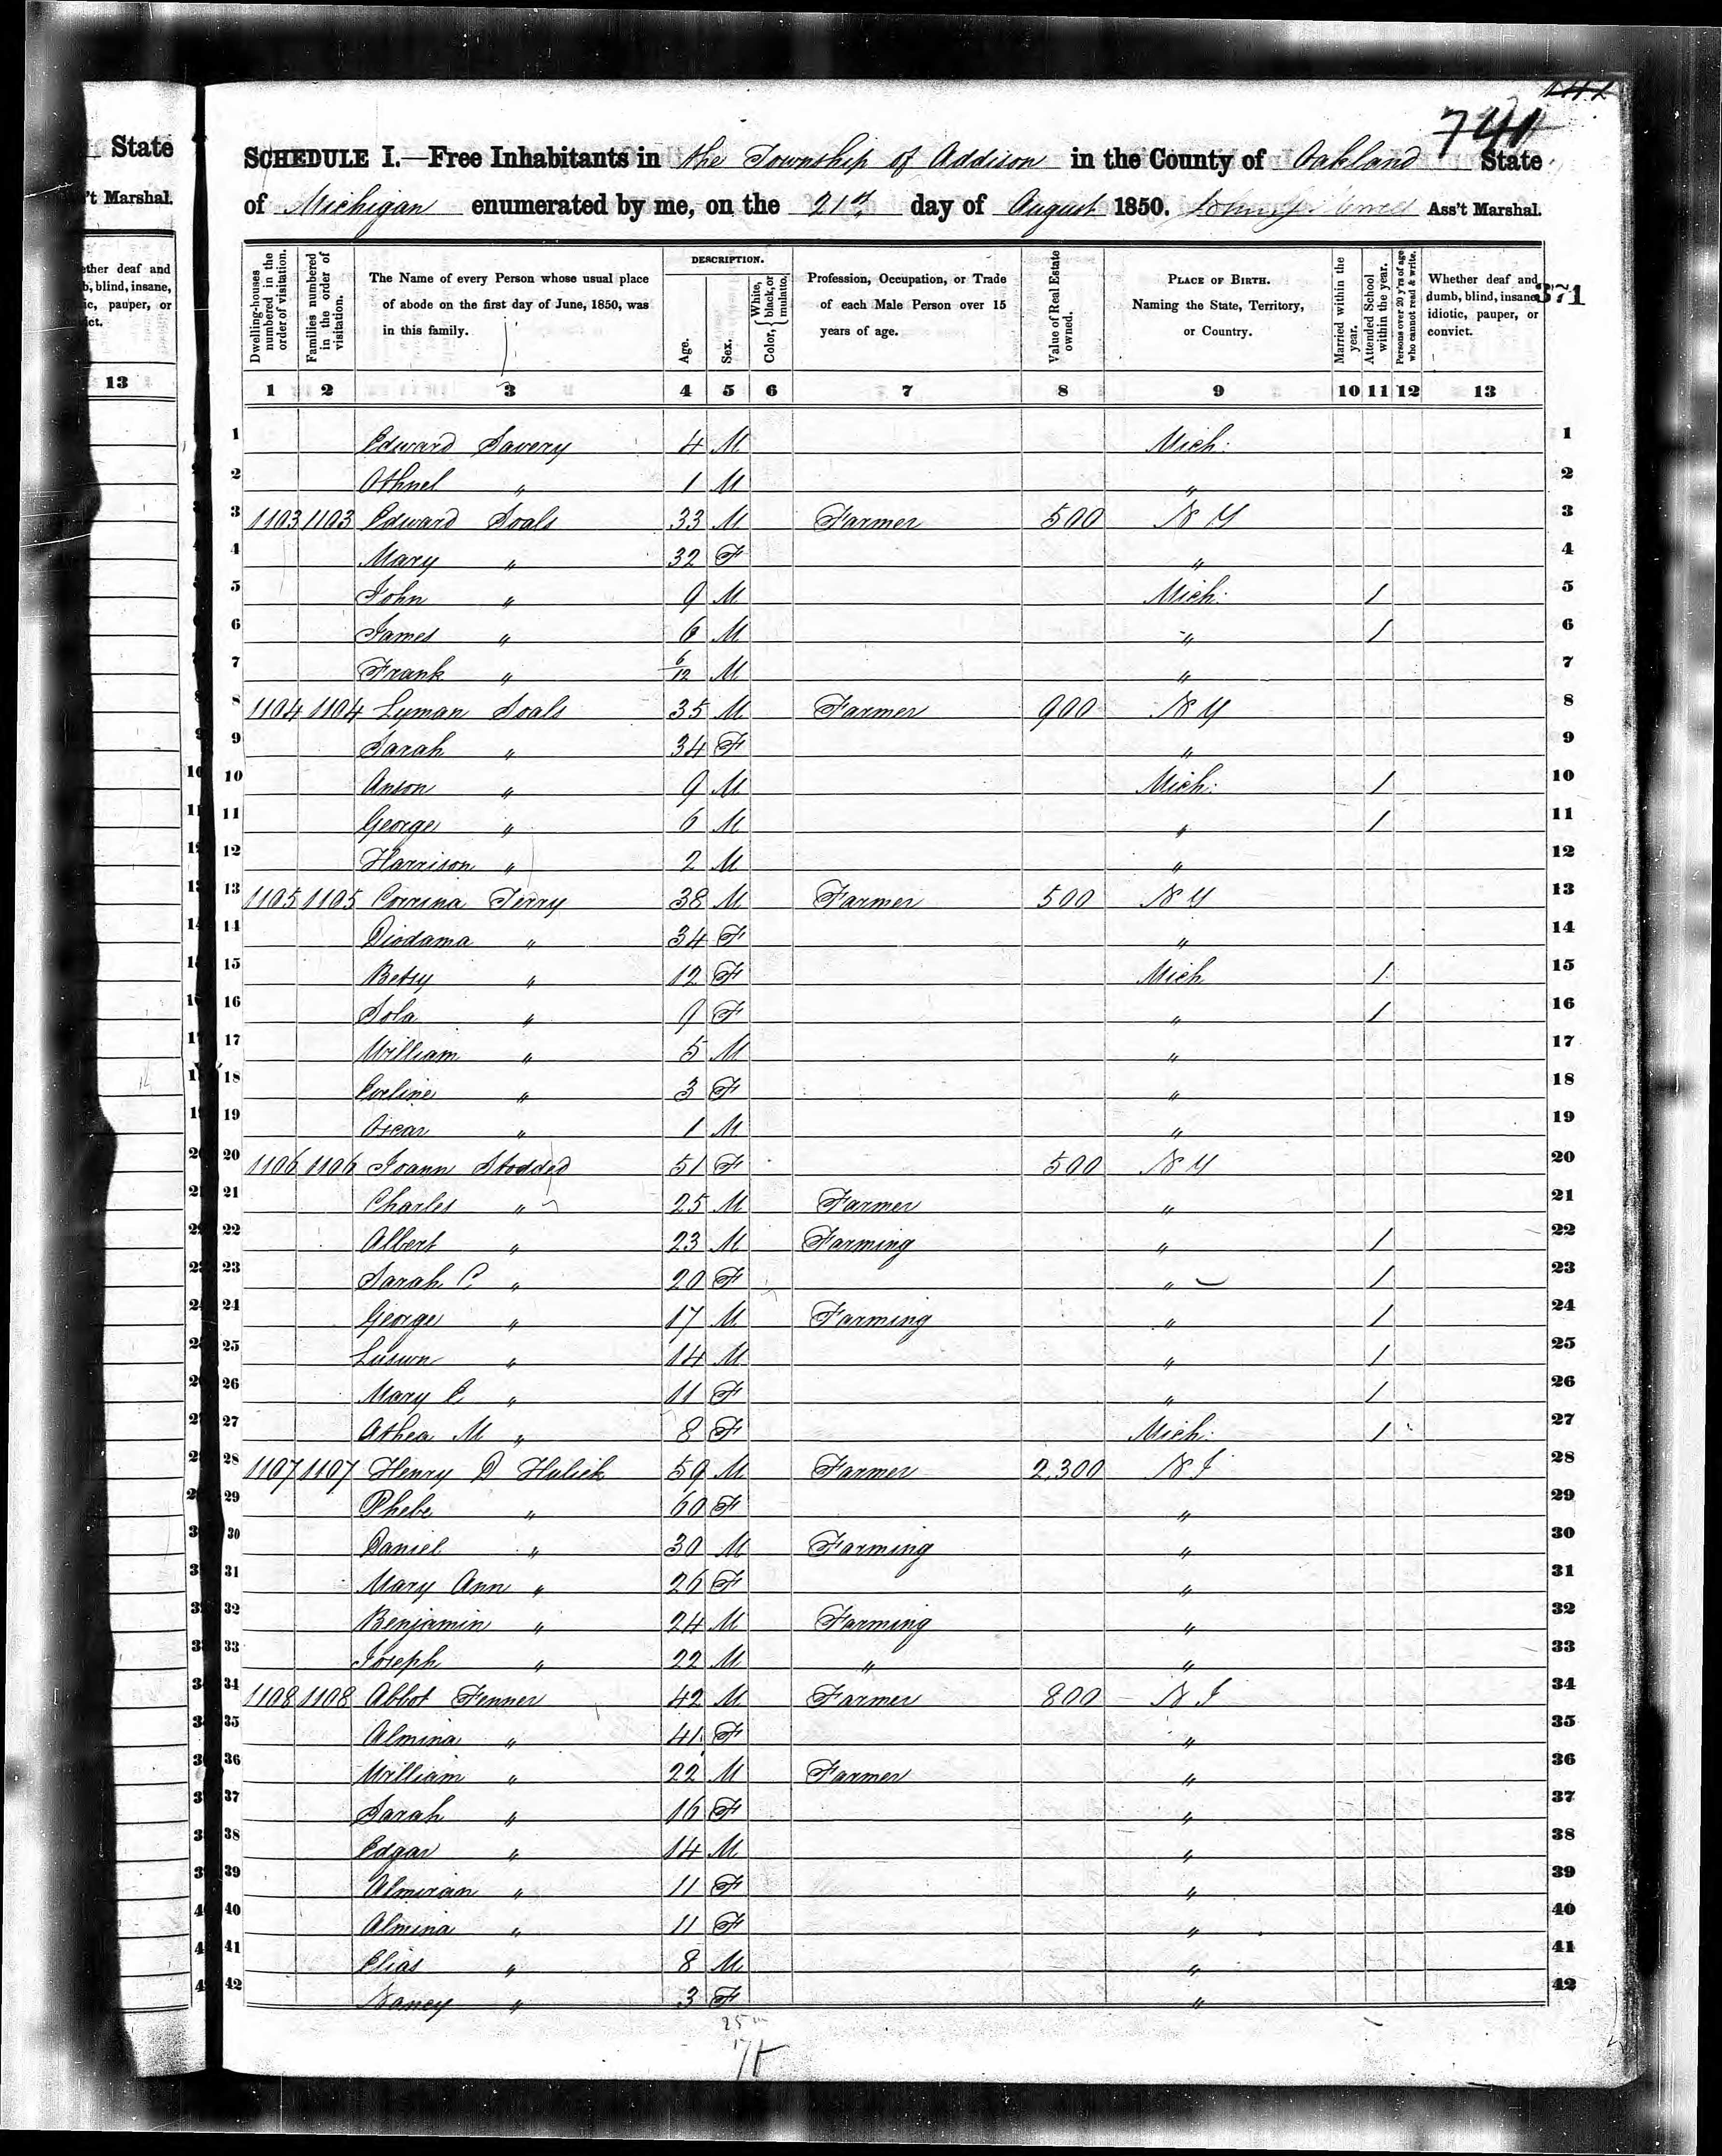 State
't Marshal.
ether deaf and
b, blind, insane,
ic, pauper, or
ict.
13
741
SCHEDULE I.—Free Inhabitants in the Township of Addison in the County of Oakland State
of Michigan enumerated by me, on the 21st day of August 1850. Ass't Marshal.
371
Dwelling-houses numbered in the order of visitation.
Families numbered in the order of visitation.
The Name of every Person whose usual place of abode on the first day of June, 1850, was in this family.
DESCRIPTION.
Age.
Sex.
Color, { White, black, or mulatto.
Profession, Occupation, or Trade of each Male Person over 15 years of age.
Value of Real Estate owned.
PLACE OF BIRTH. Naming the State, Territory, or Country.
Married within the year.
Attended School within the year.
Persons over 20 y'rs of age who cannot read & write.
Whether deaf and dumb, blind, insane, idiotic, pauper, or convict.
1 2 3 4 5 6 7 8 9 10 11 12 13
1 Edward Savery 4 M Mich. 1
2 Othnel " 1 M " 2
3 1103 1103 Edward Soals 33 M Farmer 500 N Y 3
4 Mary " 32 F " 4
5 John " 9 M Mich. 1 5
6 James " 6 M " 1 6
7 Frank " 6/12 M " 7
8 1104 1104 Lyman Soals 35 M Farmer 900 N Y 8
9 Sarah " 34 F " 9
10 Anson " 9 M Mich. 1 10
11 George " 6 M " 1 11
12 Harrison " 2 M " 12
13 1105 1105 Corrina Terry 38 M Farmer 500 N Y 13
14 Diodama " 34 F " 14
15 Betsy " 12 F Mich 1 15
16 Sola " 9 F " 1 16
17 William " 5 M " 17
18 Eveline " 3 F " 18
19 Oscar " 1 M " 19
20 1106 1106 Joann Stodded 51 F 500 N Y 20
21 Charles " 25 M Farmer " 21
22 Albert " 23 M Farming " 1 22
23 Sarah C. " 20 F " 1 23
24 George " 17 M Farming " 1 24
25 " 14 M " 1 25
26 Mary E " 11 F " 1 26
27 Athea M " 8 F Mich. 1 27
28 1107 1107 Henry D Hulick 59 M Farmer 2,300 N J 28
29 Phebe " 60 F " 29
30 Daniel " 30 M Farming " 30
31 Mary Ann " 26 F " 31
32 Benjamin " 24 M Farming " 32
33 Joseph " 22 M " " 33
34 1108 1108 Abbot Fenner 42 M Farmer 800 N J 34
35 Almina " 41 F " 35
36 William " 22 M Farmer " 36
37 Sarah " 16 F " 37
38 Edgar " 14 M " 38
39 Almiran " 11 F " 39
40 Almina " 11 F " 40
41 Elias " 8 M " 41
42 Nancy " 3 F " 42
25 m